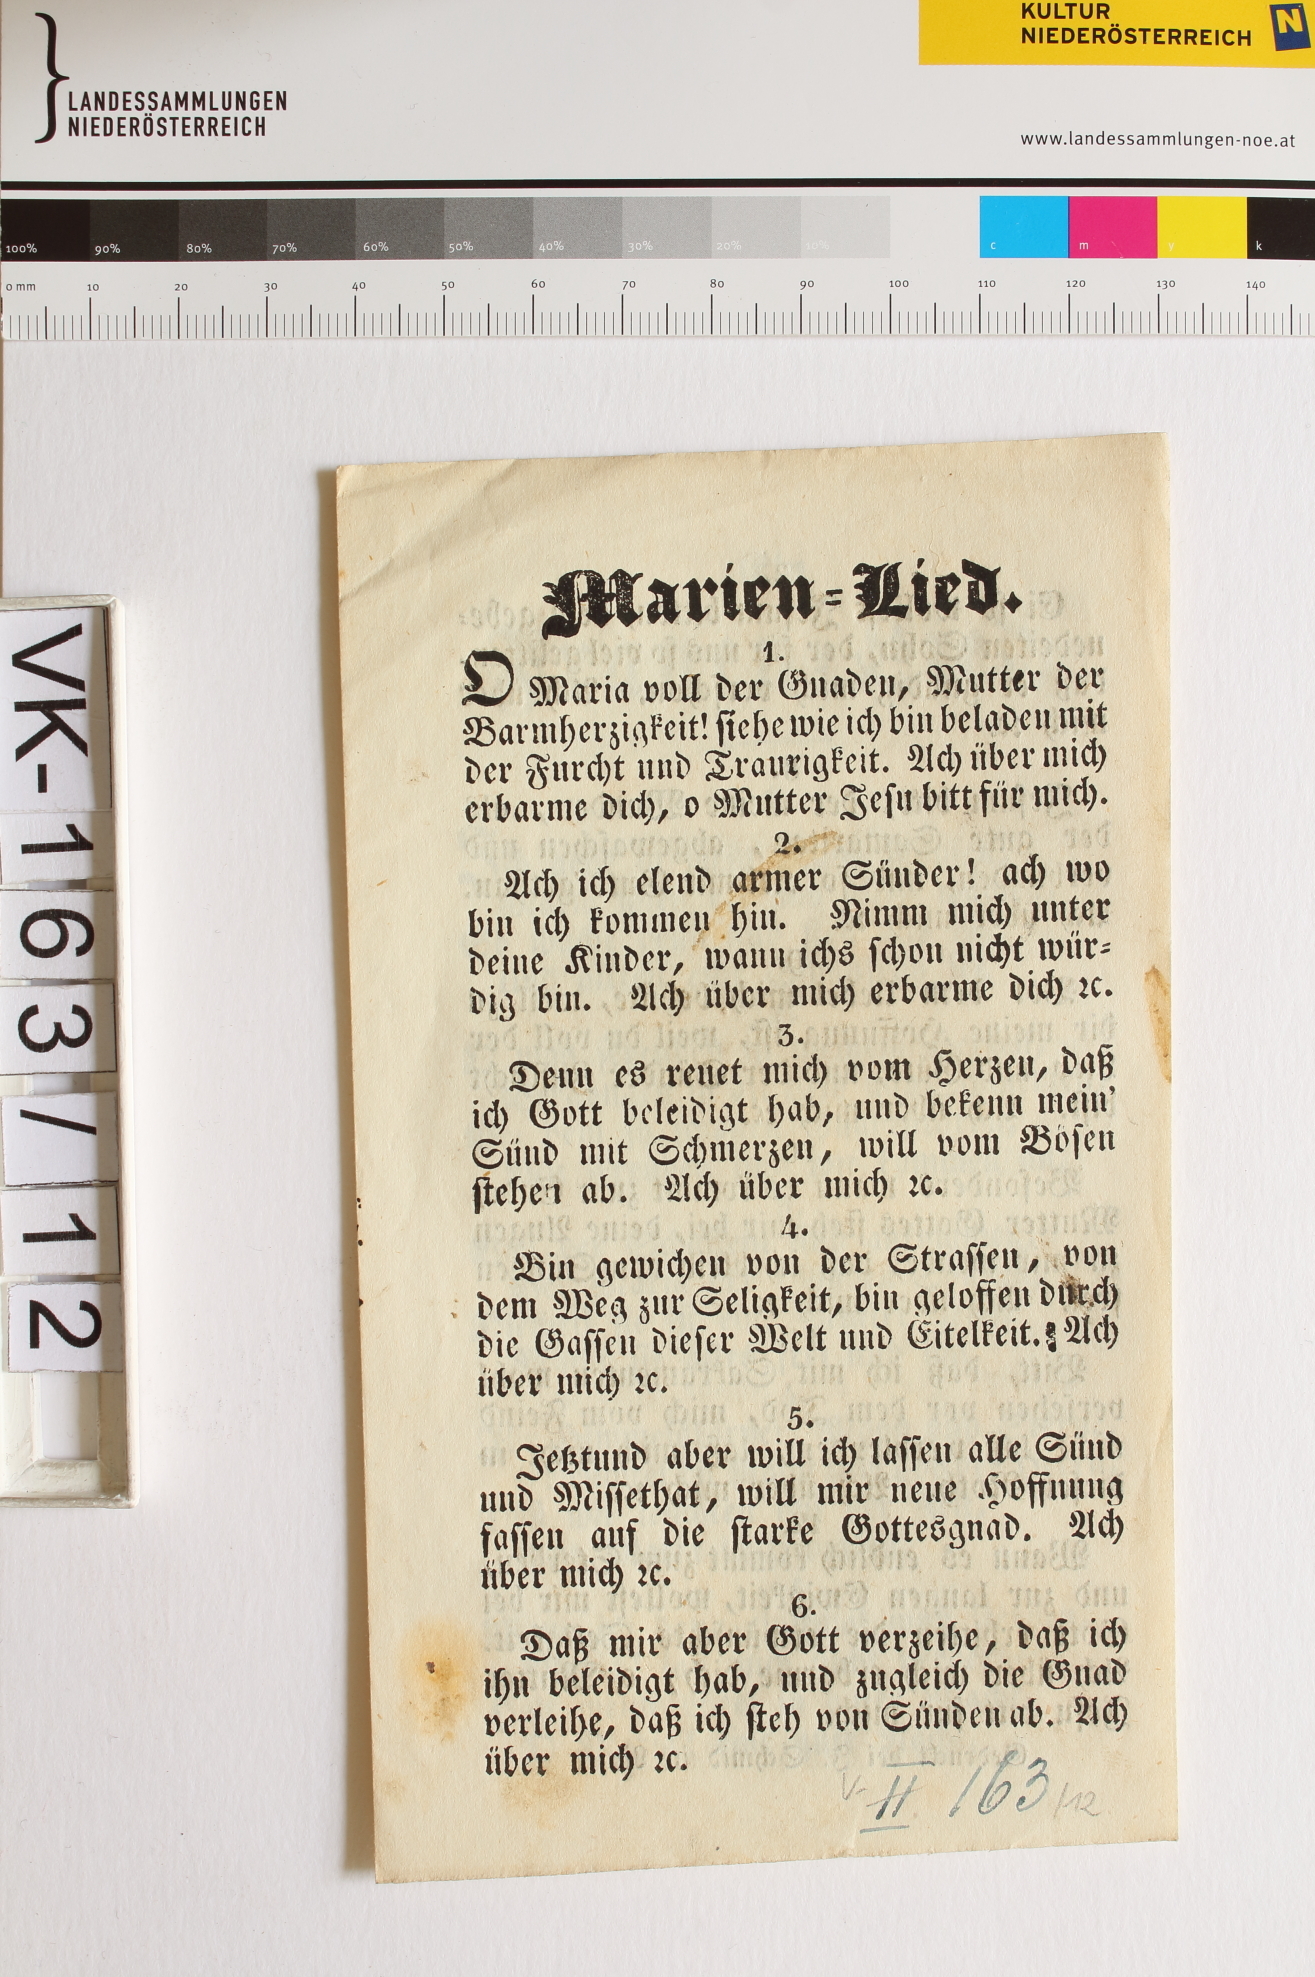 KULTUR
NIEDERÖSTERREICH
N
LANDESSAMMLUNGEN
NIEDERÖSTERREICH
www.landessammlungen-noe.at
100% 90% 80% 70% 60% 50% 40% 30% 20% 10% c m y k
0 mm 10 20 30 40 50 60 70 80 90 100 110 120 130 140
VK-163/12
Marien=Lied.
1.
O Maria voll der Gnaden, Mutter der
Barmherzigkeit! siehe wie ich bin beladen mit
der Furcht und Traurigkeit. Ach über mich
erbarme dich, o Mutter Jesu bitt für mich.
2.
Ach ich elend armer Sünder! ach wo
bin ich kommen hin. Nimm mich unter
deine Kinder, wann ichs schon nicht wür=
dig bin. Ach über mich erbarme dich ꝛc.
3.
Denn es reuet mich vom Herzen, daß
ich Gott beleidigt hab, und bekenn mein'
Sünd mit Schmerzen, will vom Bösen
stehen ab. Ach über mich ꝛc.
4.
Bin gewichen von der Strassen, von
dem Weg zur Seligkeit, bin geloffen durch
die Gassen dieser Welt und Eitelkeit. Ach
über mich ꝛc.
5.
Jetztund aber will ich lassen alle Sünd
und Missethat, will mir neue Hoffnung
fassen auf die starke Gottesgnad. Ach
über mich ꝛc.
6.
Daß mir aber Gott verzeihe, daß ich
ihn beleidigt hab, und zugleich die Gnad
verleihe, daß ich steh von Sünden ab. Ach
über mich ꝛc.
V- II. 163/12